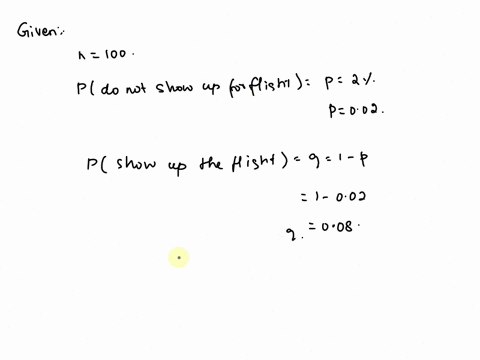 Given:-
n = 100.
P( do not show up for flight) = p = 2%
p = 0.02.
P( show up the flight) = q = 1 - p
= 1 - 0.02
q = 0.08.